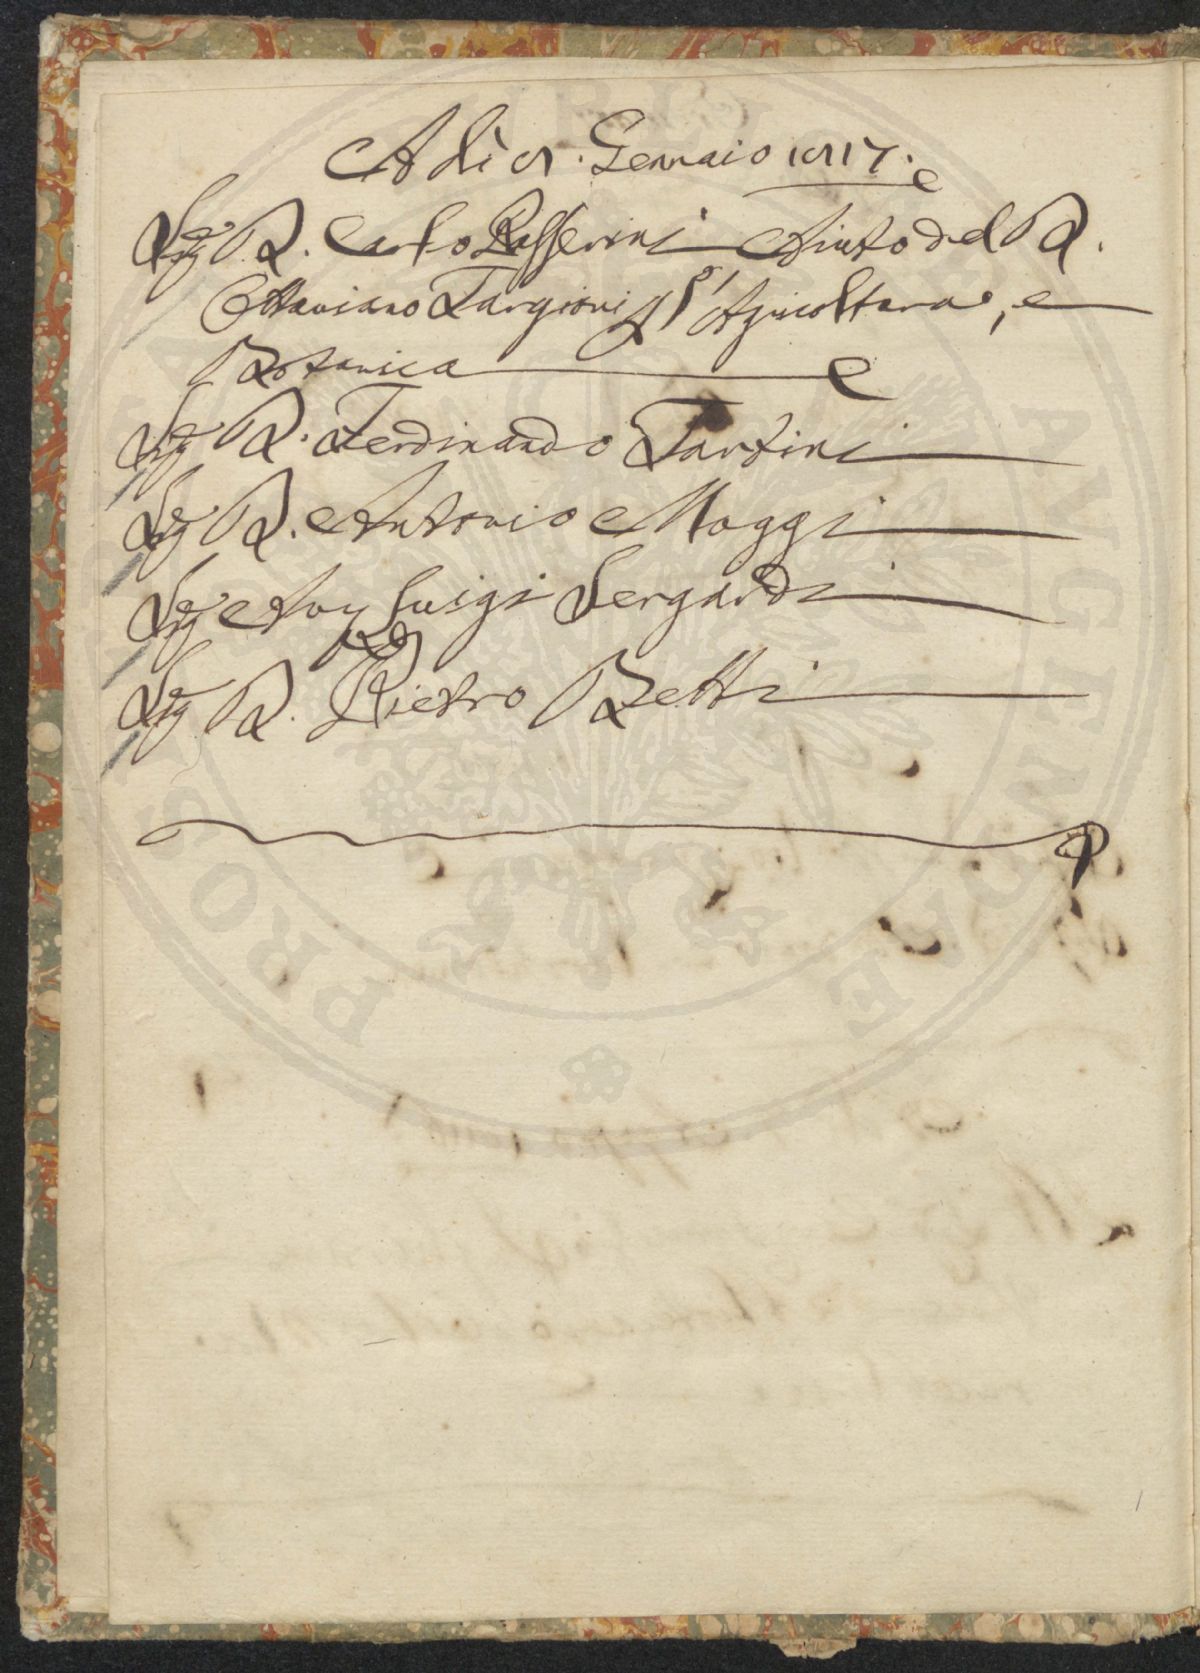 Adì 8. Gennaio 1817.
Sig.e D. Carlo Passerini Aiuto del D.
Ottaviano Targioni p l'Agricoltura, e
Botanica
Sig.e D. Ferdinando Tartini
Sig.e D. Antonio Maggi
Sig.e Avv Luigi Sergardi
Sig.e D. Pietro Betti